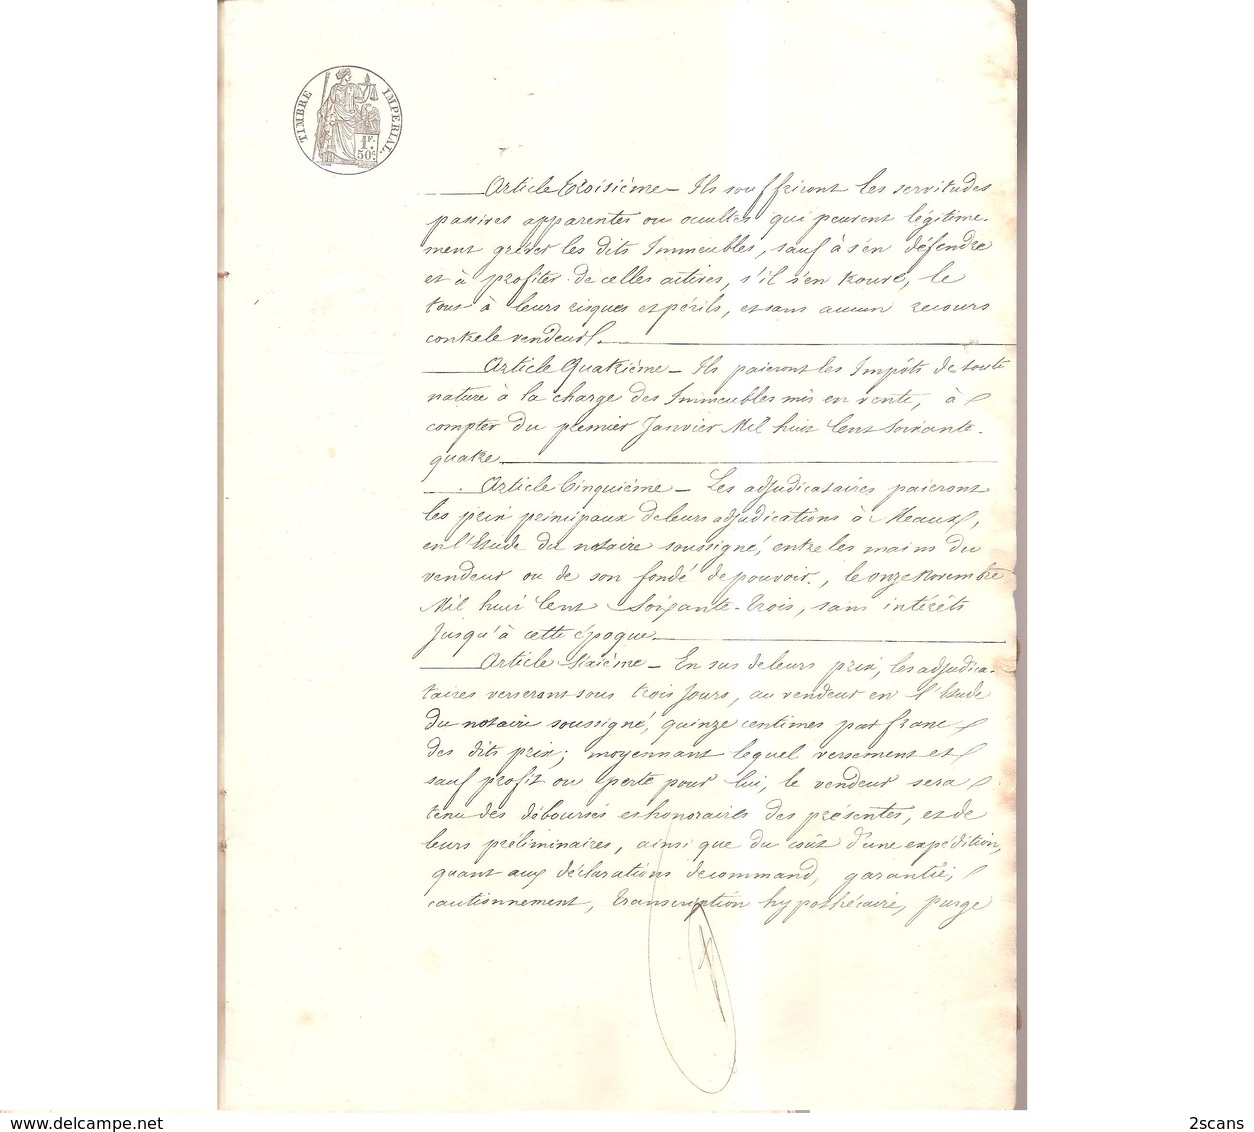 TIMBRE IMPERIAL.
1F.
50c.
Article troisième _ Ils souffriront les servitudes
passives apparentes ou occultes qui peuvent légitime-
ment grêver les dits Immeubles, sauf à s'en défendre
et à profiter de celles actives, s'il s'en trouve, le
tous à leurs risques et périls, et sans aucun recours
contre le vendeur.
Article Quatrième _ Ils paieront les Impôts de toute
nature à la charge des Immeubles mis en vente, à
compter du premier Janvier Mil huit Cent Soixante-
quatre
Article Cinquième _ Les adjudicataires paieront
les prix principaux de leurs adjudications à Meaux,
en l'Etude du notaire soussigné, entre les mains du
vendeur ou de son fondé de pouvoir, le onze Novembre
Mil huit Cent Soixante-trois, sans intérêts
Jusqu'à cette époque
Article Sixième _ En sus de leurs prix, les adjudica-
taires verseront sous trois Jours, au vendeur en l'Etude
du notaire soussigné, quinze centimes par franc
des dits prix; moyennant lequel versement et
sauf profit ou perte pour lui, le vendeur sera
tenu des déboursés et honoraires des présentes, et de
leurs préliminaires, ainsi que du coût d'une expédition,
quant aux déclarations de command, garantie,
cautionnement, transcription hypothécaire, purge
2scans